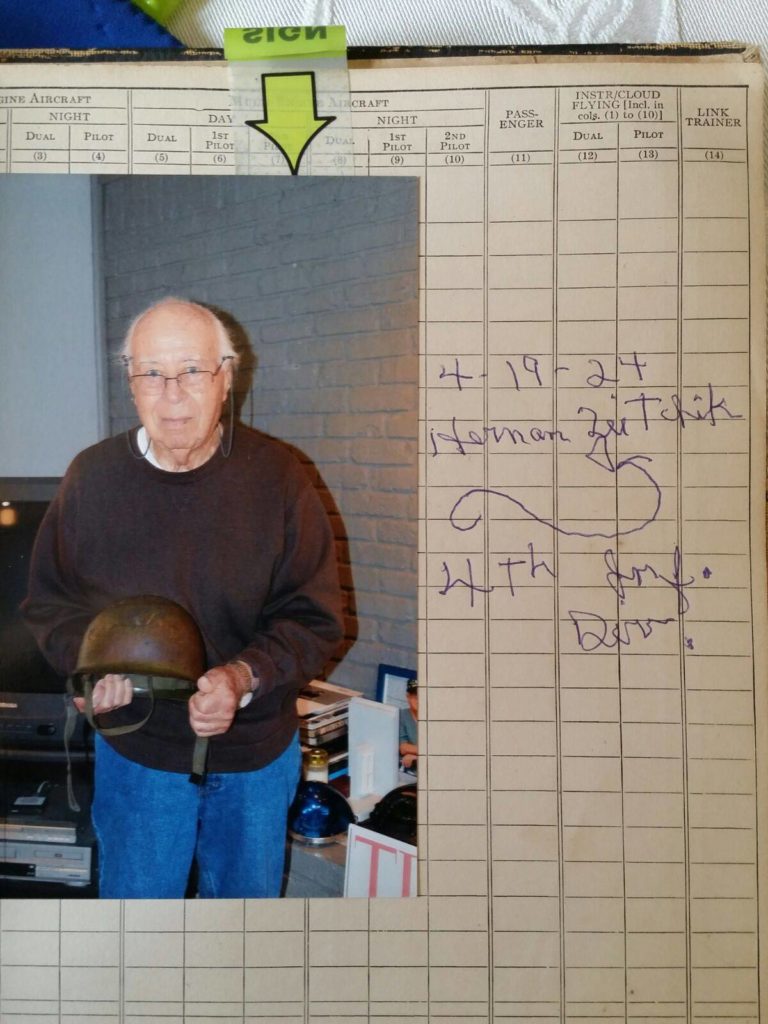 SIGN
GINE AIRCRAFT AIRCRAFT
INSTR/CLOUD
FLYING [Incl. in
cols. (1) to (10)]
NIGHT DAY NIGHT
PASS-
ENGER
LINK
TRAINER
DUAL PILOT DUAL 1ST
PILOT DUAL 1ST
PILOT 2ND
PILOT DUAL PILOT
(3) (4) (5) (6) (7) (8) (9) (10) (11) (12) (13) (14)
4-19-24
Herman Zeitchik
4Th Inf.
Div.